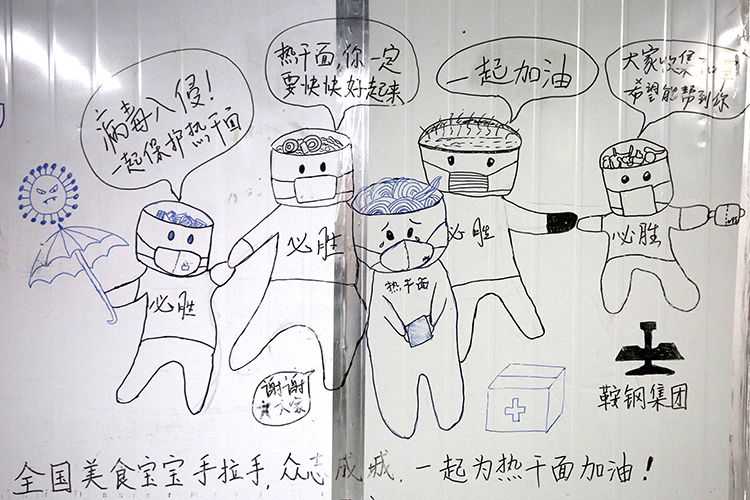 病毒入侵！
一起保护热干面
热干面，你一定
要快快好起来
一起加油
大家收集
希望能帮到你
必胜
必胜
热干面
必胜
必胜
谢谢
大家
鞍钢集团
全国美食宝宝手拉手，众志成城，一起为热干面加油！